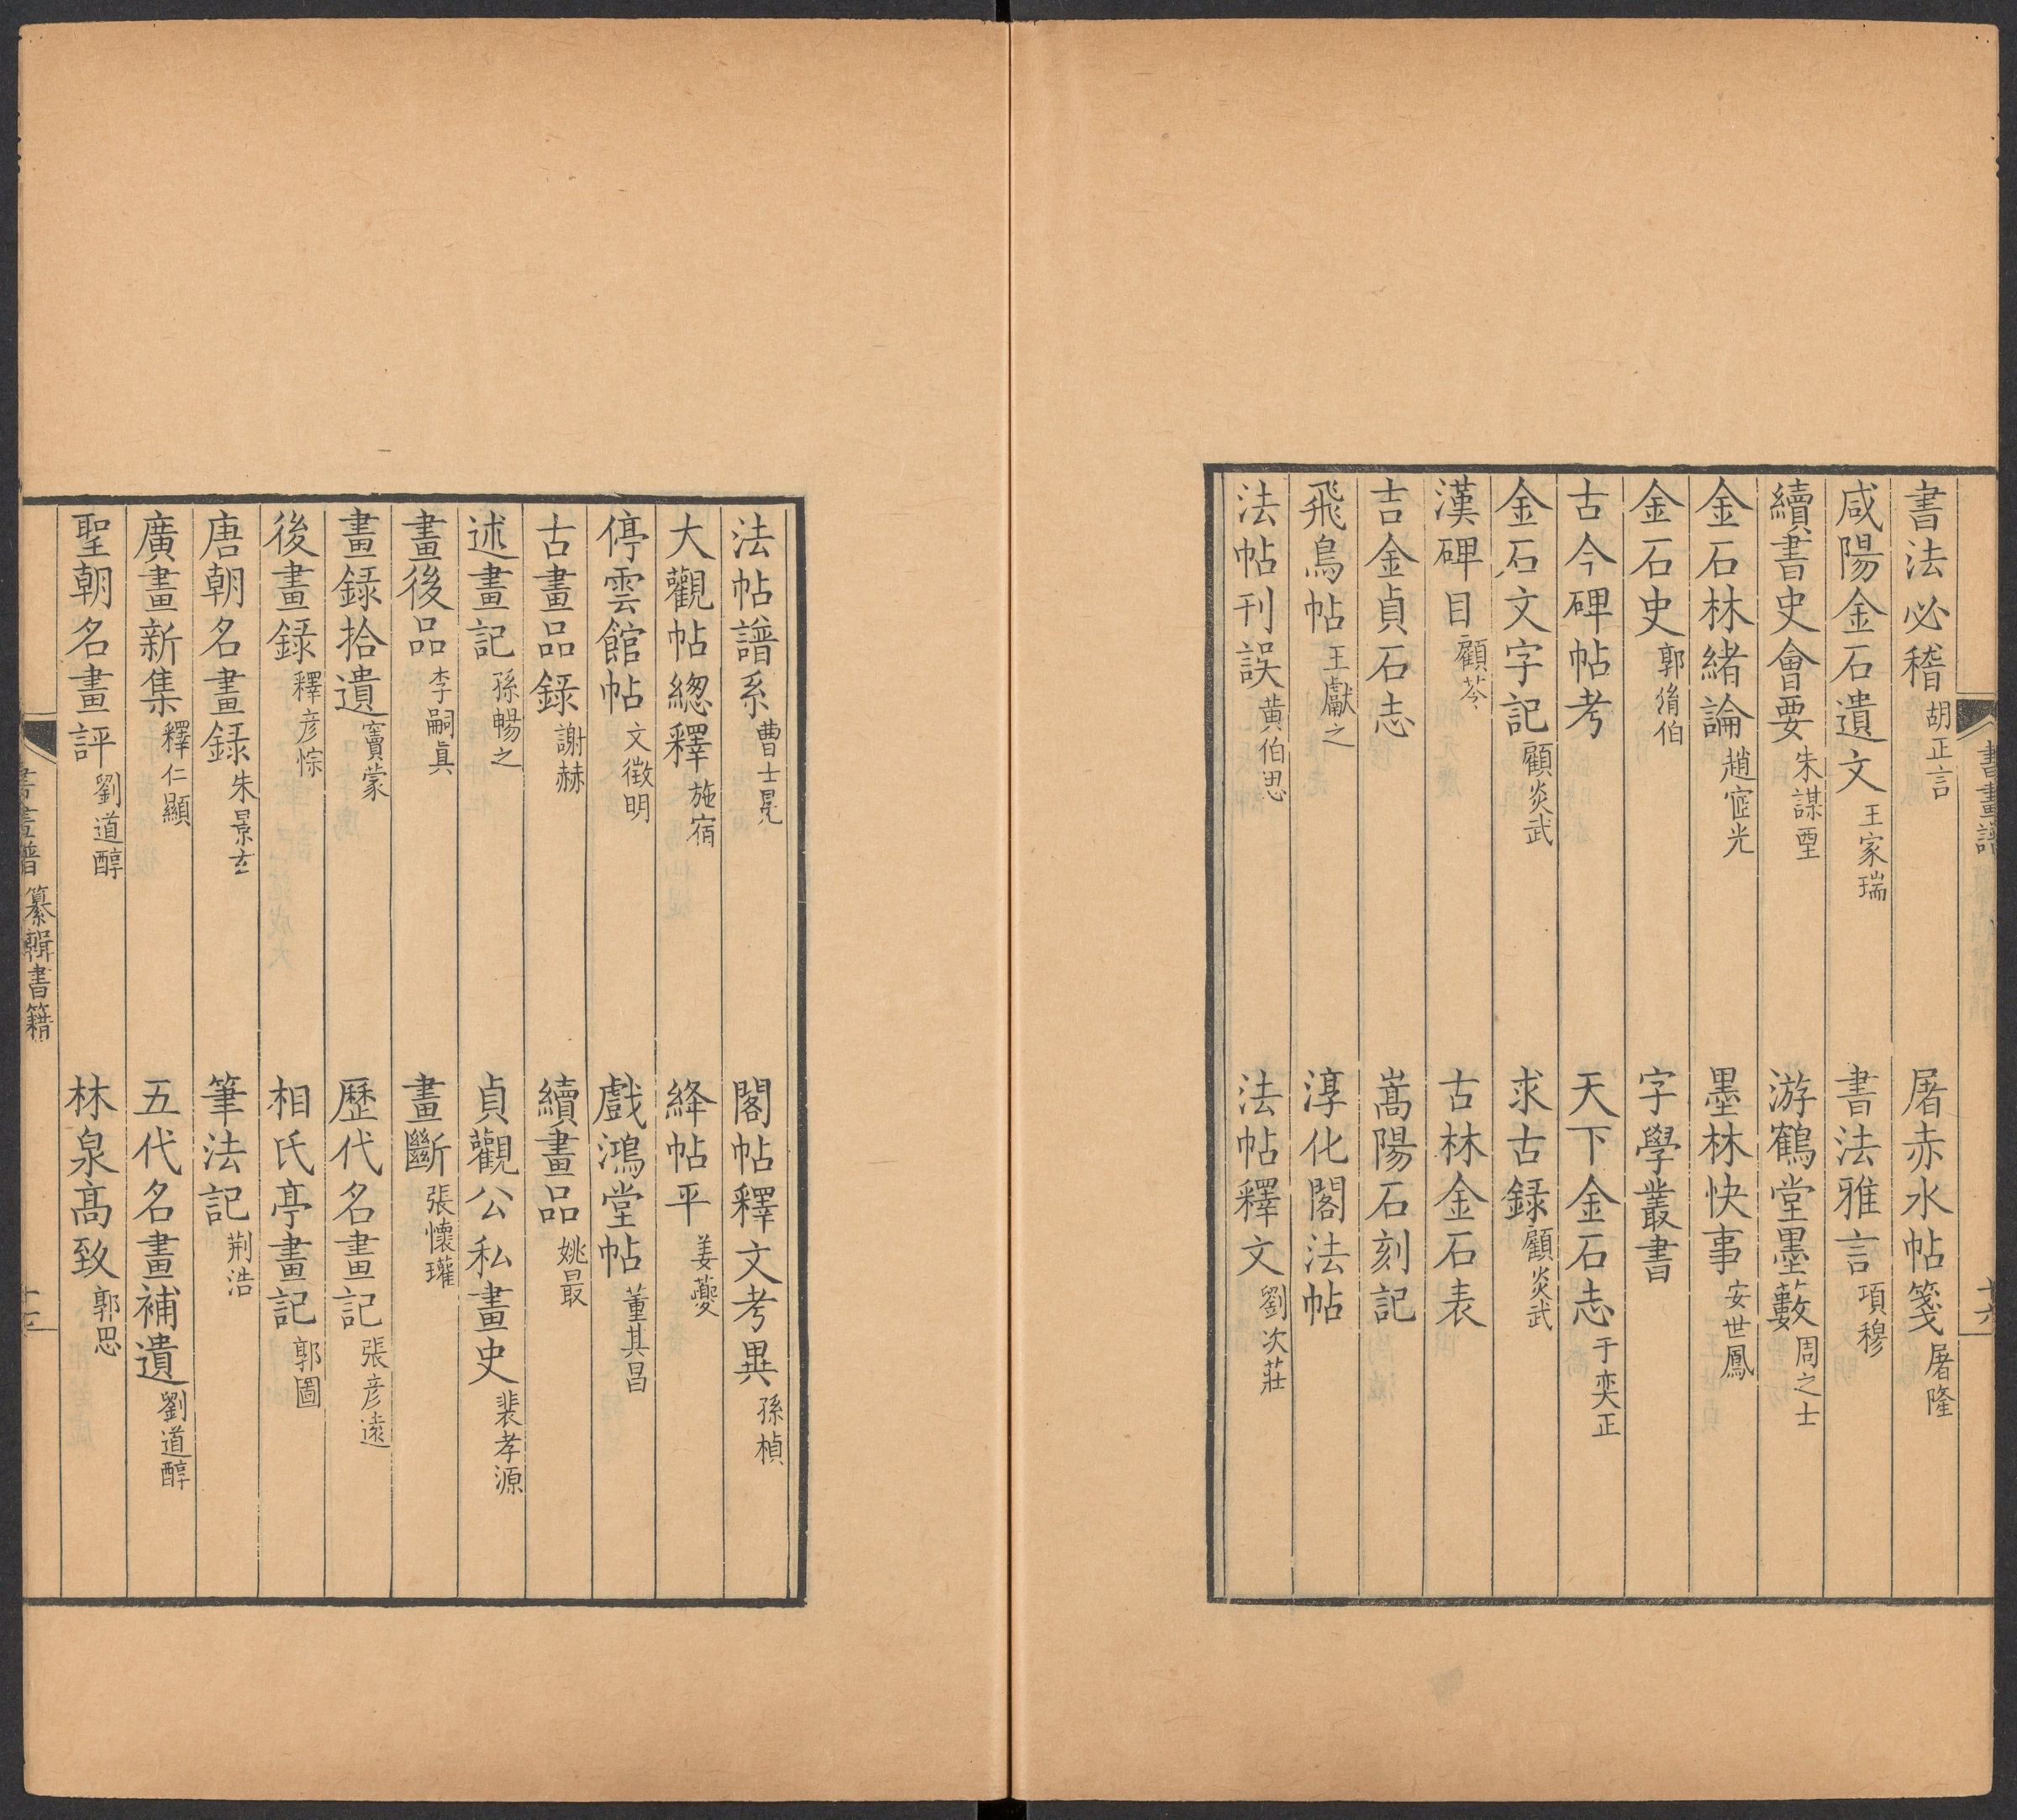 書畫譜
十六
書法必稽 胡正言 屠赤水帖箋 屠隆
咸陽金石遺文 王家瑞 書法雅言 項穆
續書史會要 朱謀垔 游鶴堂墨藪 周之士
金石林緒論 趙宧光 墨林快事 安世鳳
金石史 郭宗伯 字學叢書
古今碑帖考 天下金石志 于奕正
金石文字記 顧炎武 求古錄 顧炎武
漢碑目 顧苓 古林金石表
吉金貞石志 嵩陽石刻記
飛鳥帖 王獻之 淳化閣法帖
法帖刊誤 黃伯思 法帖釋文 劉次莊
法帖譜系 曹士冕 閣帖釋文考異 孫楨
大觀帖緫釋 施宿 絳帖平 姜夔
停雲館帖 文徵明 戲鴻堂帖 董其昌
古畫品錄 謝赫 續畫品 姚最
述畫記 孫暢之 貞觀公私畫史 裴孝源
畫後品 李嗣真 畫斷 張懷瓘
畫錄拾遺 竇蒙 歷代名畫記 張彥遠
後畫錄 釋彥悰 相氏亭畫記 郭圖
唐朝名畫錄 朱景玄 筆法記 荆浩
廣畫新集 釋仁顯 五代名畫補遺 劉道醇
聖朝名畫評 劉道醇 林泉高致 郭思
書畫譜 纂輯書籍